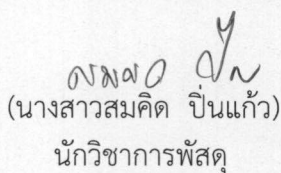 (นางสาวสมคิด ปิ่นแก้ว)
นักวิชาการพัสดุ